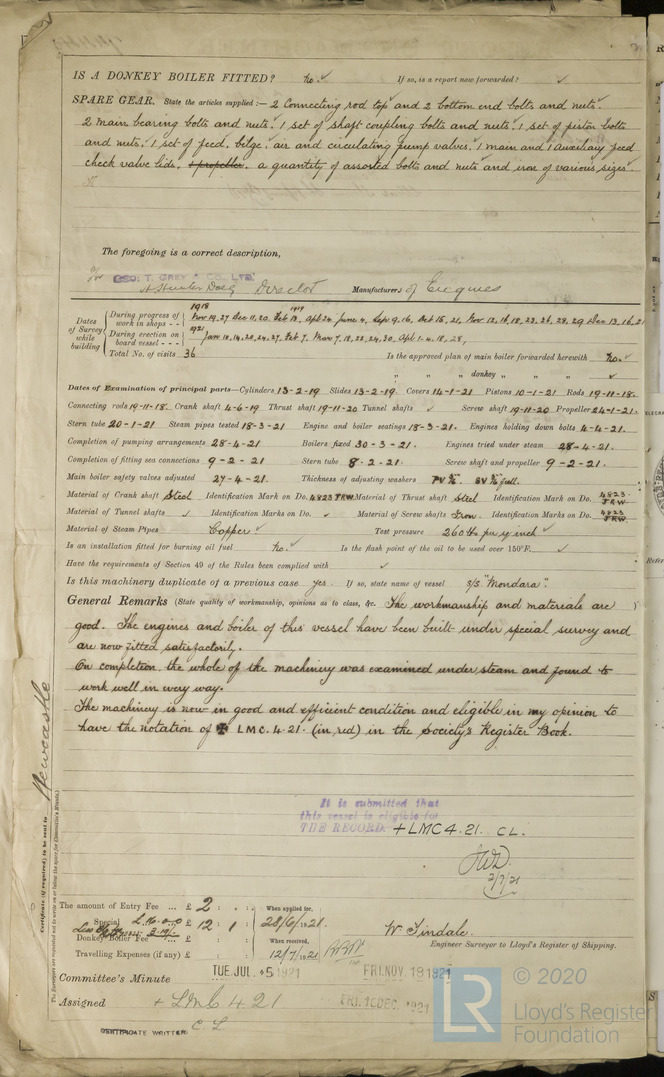 IS A DONKEY BOILER FITTED? No. ✓ If so, is a report now forwarded? ✓
SPARE GEAR. State the articles supplied:— 2 Connecting rod top and 2 bottom end bolts and nuts.
2 main bearing bolts and nuts. 1 set of shaft coupling bolts and nuts. 1 set of piston bolts
and nuts. 1 set of feed, bilge, air and circulating pump valves. 1 main and 1 auxiliary feed
check valve lids. 1 propeller. a quantity of assorted bolts and nuts and iron of various sizes.
The foregoing is a correct description,
GEO: T. GREY & CO., LTD.
Director Manufacturers of Engines
Dates of Survey while building
During progress of work in shops - - 1918 Nov 19, 27 Dec 11, 20. Feb 13, 1919 Apl 24 June 4, Sep 9, 16, Oct 15, 21, Nov 12, 16, 18, 23, 26, 28, 29 Dec 13, 16, 21
During erection on board vessel - - - 1921 Jan 10, 14, 20, 24, 27, Feb 7, Mar 7, 18, 22, 24, 30, Apl 1, 4, 18, 28,
Total No. of visits 36
Is the approved plan of main boiler forwarded herewith No. ✓
" " " donkey " " " ✓
Dates of Examination of principal parts—Cylinders 13-2-19 Slides 13-2-19. Covers 14-1-21 Pistons 10-1-21 Rods 19-11-18.
Connecting rods 19-11-18. Crank shaft 4-6-19 Thrust shaft 19-11-20 Tunnel shafts ✓ Screw shaft 19-11-20 Propeller 24-1-21.
Stern tube 20-1-21 Steam pipes tested 18-3-21 Engine and boiler seatings 18-3-21. Engines holding down bolts 4-4-21.
Completion of pumping arrangements 28-4-21 Boilers fixed 30-3-21. Engines tried under steam 28-4-21.
Completion of fitting sea connections 9-2-21 Stern tube 8-2-21. Screw shaft and propeller 9-2-21.
Main boiler safety valves adjusted 27-4-21. Thickness of adjusting washers
Material of Crank shaft Steel Identification Mark on Do. 4823 JRW Material of Thrust shaft Steel Identification Mark on Do. 4823 JRW
Material of Tunnel shafts ✓ Identification Marks on Do. ✓ Material of Screw shafts Iron. Identification Marks on Do. 4823 JRW
Material of Steam Pipes Copper. ✓ Test pressure 260 lbs per sq inch ✓
Is an installation fitted for burning oil fuel No. ✓ Is the flash point of the oil to be used over 150°F. ✓
Have the requirements of Section 49 of the Rules been complied with ✓
Is this machinery duplicate of a previous case yes. If so, state name of vessel s/s "Mondara".
General Remarks (State quality of workmanship, opinions as to class, &c. The workmanship and materials are
good. The engines and boiler of this vessel have been built under special survey and
are now fitted satisfactorily.
On completion the whole of the machinery was examined under steam and found to
work well in every way.
The machinery is now in good and efficient condition and eligible in my opinion to
have the notation of ✠ LMC. 4.21. (in red) in the Society's Register Book.
It is submitted that
this vessel is eligible for
THE RECORD. + LMC 4.21. CL.
2/7/21
Certificate (if required) to be sent to Newcastle
The amount of Entry Fee ... £ 2 : . : When applied for,
Special £ 12 : 1 : 28/6/1921.
Donkey Boiler Fee ... £ : : When received,
Travelling Expenses (if any) £ : : 12/7/1921
W. Tindale.
Engineer Surveyor to Lloyd's Register of Shipping.
Committee's Minute TUE. JUL. 5 1921 FRI. NOV. 18 1921
Assigned + LMC 4 21 FRI. 16 DEC. 1921
CERTIFICATE WRITTEN C. L.
© 2020
LR
Lloyd's Register
Foundation